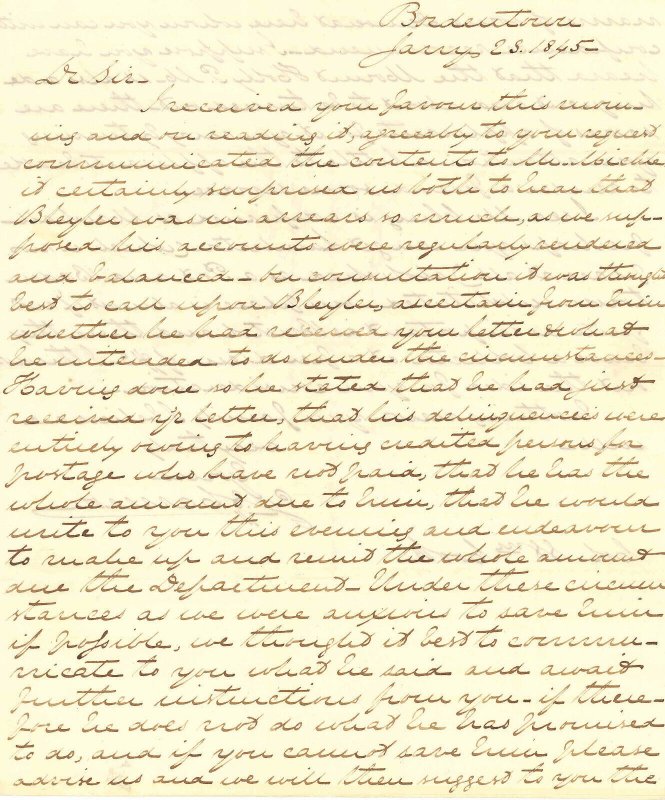 Bordentown
Jany, 23. 1845-
Dr Sir-
I received your favour this morn-
ing and on reading it, agreeably to your request
communicated the contents to Mr. Mickle
it certainly surprised us both to hear that
Bleyler was in arrears so much, as we sup-
posed his accounts were regularly rendered
and balanced - On consultation it was thought
best to call upon Bleyler, ascertain from him
whether he had received your letter & what
he intended to do under the circumstances-
Having done so he stated that he had just
received yr letter, that his delinquencies were
entirely owing to having credited persons for
postage who have not paid, that he has the
whole amount due to him, that he would
write to you this evening and endeavour
to make up and remit the whole amount
due the Department - Under these circum
stances as we were anxious to save him
if possible, we thought it best to commu-
nicate to you what he said and await
further instructions from you - if there-
fore he does not do what he has promised
to do, and if you cannot save him please
advise us and we will then suggest to you the